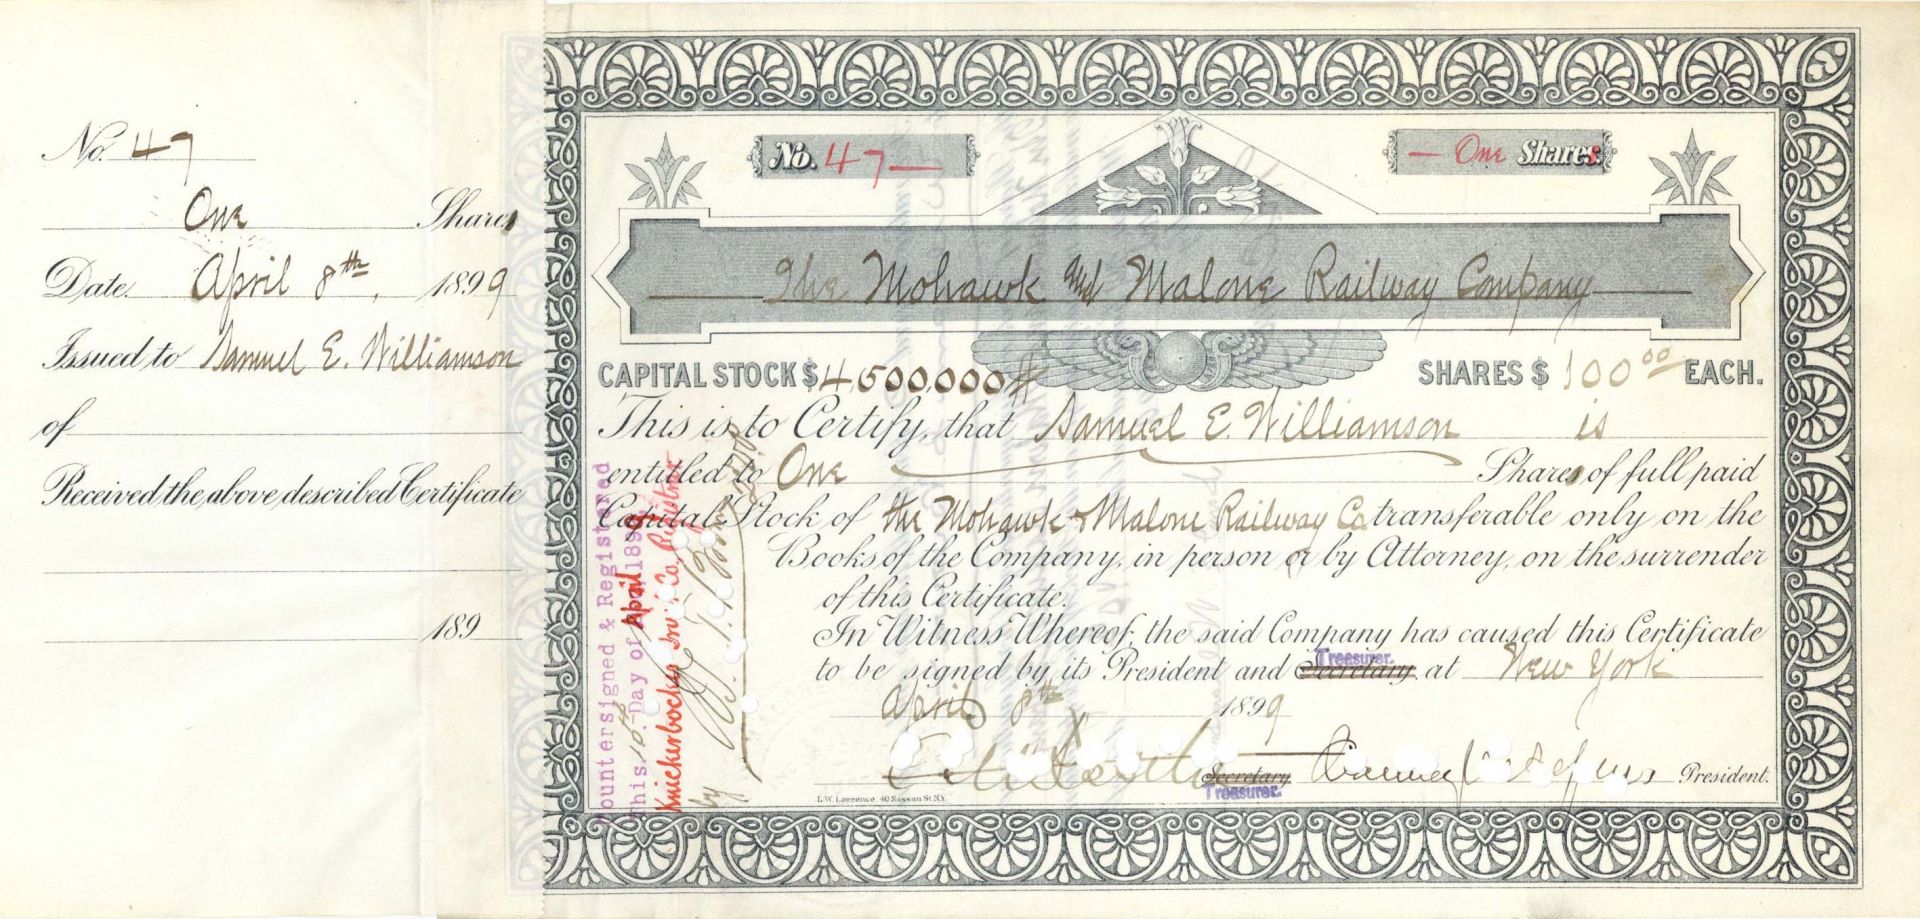 No. 47
One Shares
Date. April 8th, 1899
Issued to Samuel E. Williamson
of
Received the above described Certificate
189
No. 47
One Shares
The Mohawk and Malone Railway Company
CAPITAL STOCK $4,500,000
SHARES $ 100 00 EACH.
This is to Certify, that Samuel E. Williamson is
entitled to One Shares of full paid
Capital Stock of the Mohawk & Malone Railway Co transferable only on the
Books of the Company, in person or by Attorney, on the surrender
of this Certificate.
In Witness Whereof, the said Company has caused this Certificate
to be signed by its President and Secretary Treasurer. at New York
April 8th 1899
Secretary
Treasurer.
Chauncey President.
L.W. Lawrence 40 Nassau St. N.Y.
Countersigned & Registered
This 10th Day of April 1899
Knickerbocker Trust Co. Registrar
by